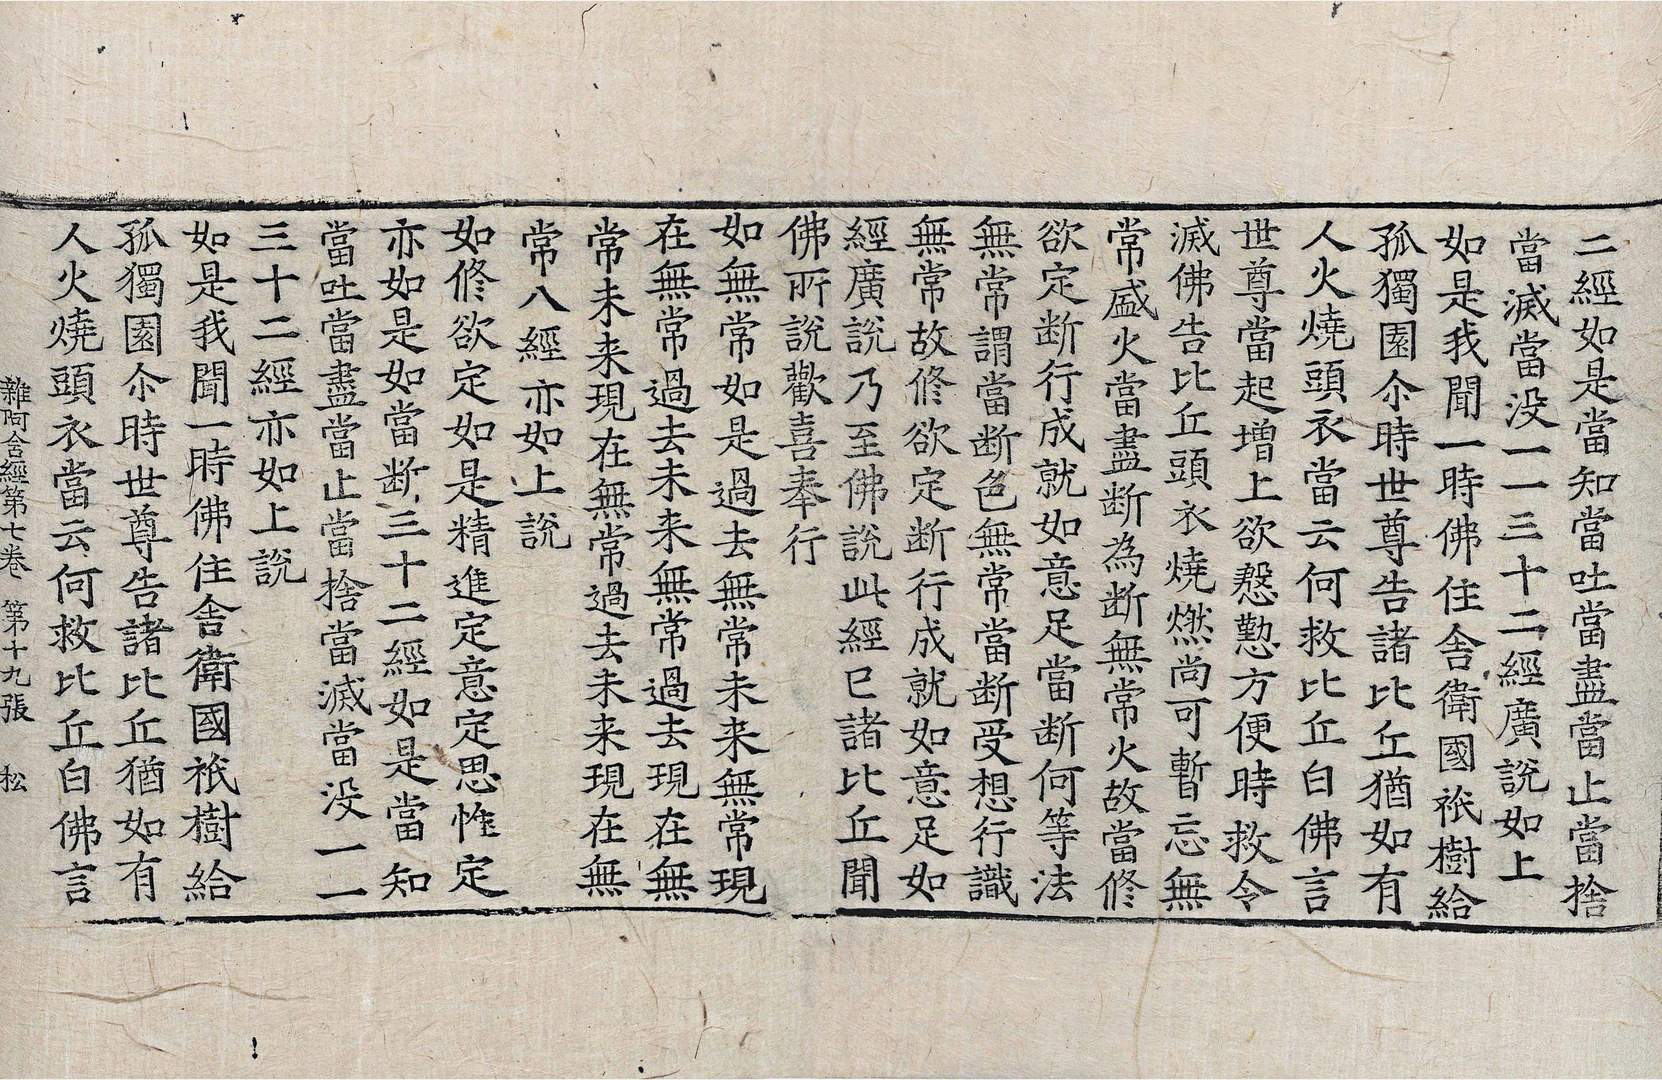 二經如是當知當吐當盡當止當捨
當滅當没一一三十二經廣說如上
如是我聞一時佛住舍衛國祇樹給
孤獨園尒時世尊告諸比丘猶如有
人火燒頭衣當云何救比丘白佛言
世尊當起增上欲慇懃方便時救令
滅佛告比丘頭衣燒燃尚可暫忘無
常盛火當盡断為断無常火故當修
欲定断行成就如意足當断何等法
無常謂當断色無常當断受想行識
無常故修欲定断行成就如意足如
經廣說乃至佛說此經已諸比丘聞
佛所說歡喜奉行
如無常如是過去無常未来無常現
在無常過去未来無常過去現在無
常未来現在無常過去未来現在無
常八經亦如上說
如修欲定如是精進定意定思惟定
亦如是如當断三十二經如是當知
當吐當盡當止當捨當滅當没一一
三十二經亦如上說
如是我聞一時佛住舍衛國祇樹給
孤獨園尒時世尊告諸比丘猶如有
人火燒頭衣當云何救比丘白佛言
雜阿含經第七卷 第十九張 松